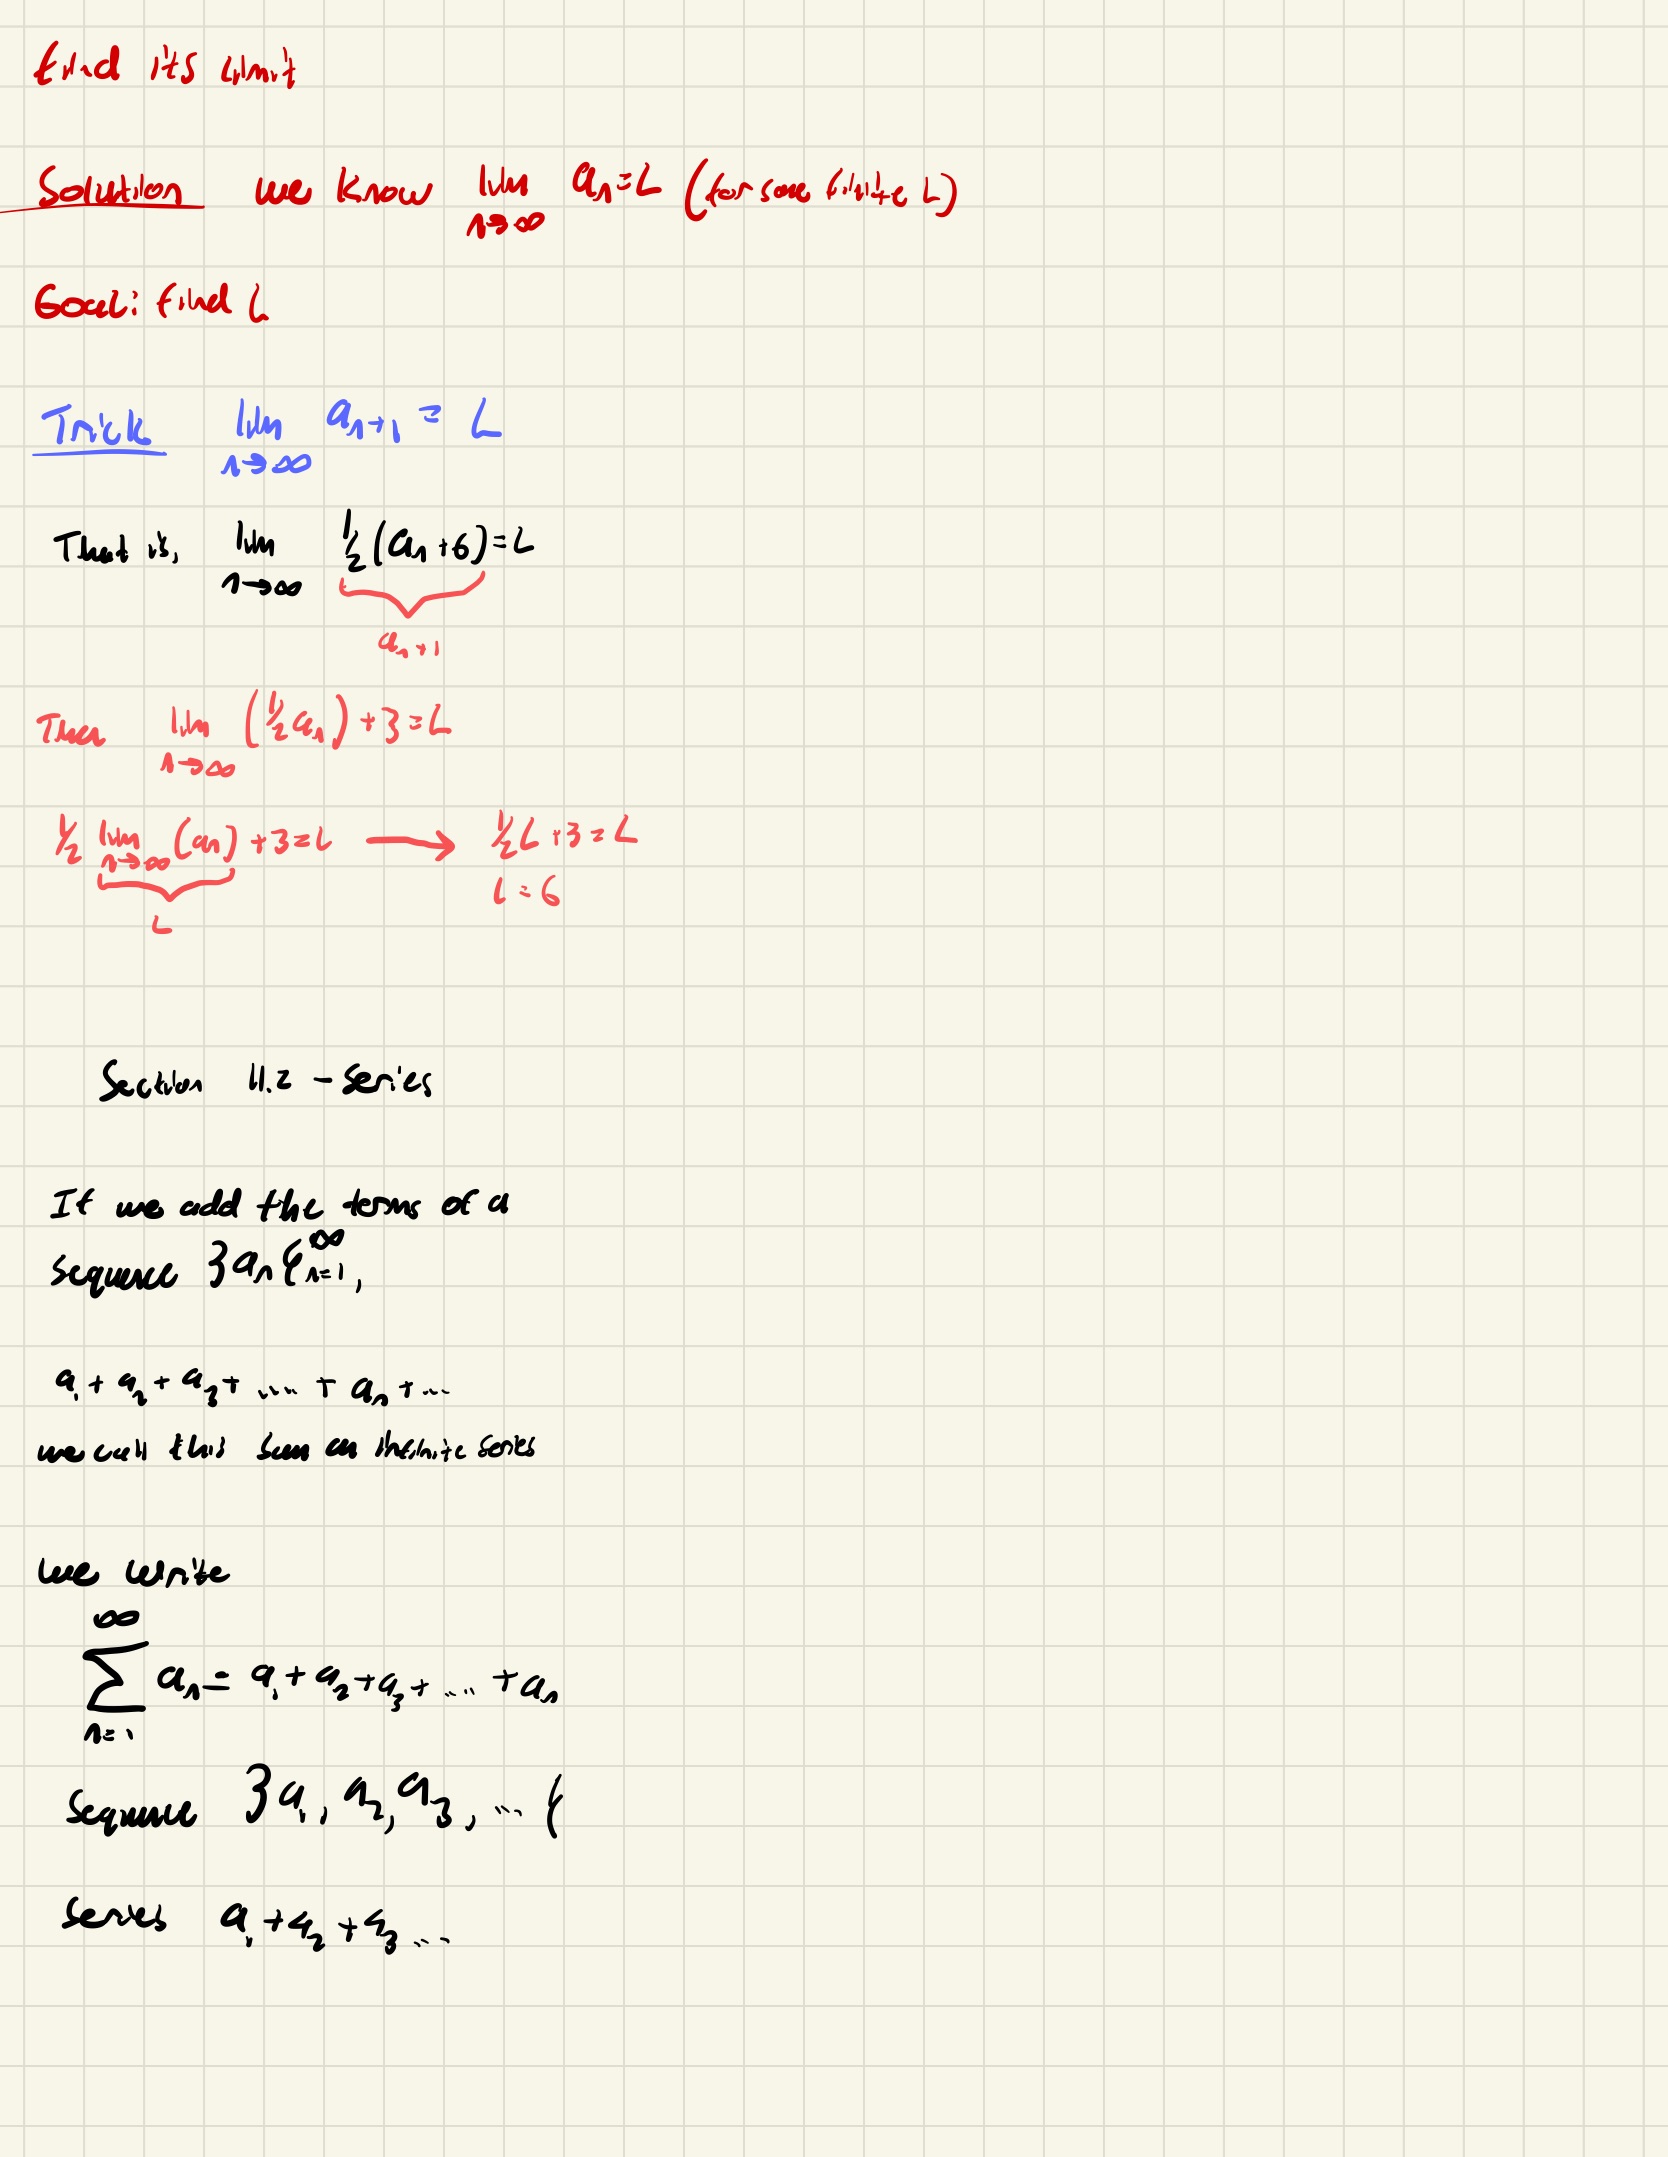 find its limit
Solution we know lim n→∞ aₙ = L (for some finite L)
Goal: find L
Trick lim n→∞ aₙ₊₁ = L
That is, lim n→∞ ½(aₙ + 6) = L
aₙ₊₁
Then lim n→∞ (½aₙ) + 3 = L
½ lim n→∞ (aₙ) + 3 = L → ½L + 3 = L
L
L = 6
Section 11.2 - Series
If we add the terms of a
sequence }aₙ{ ∞ n=1,
a₁ + a₂ + a₃ + .... + aₙ + ...
we call this sum an infinite series
we write
∞ ∑ n=1 aₙ = a₁ + a₂ + a₃ + .... + aₙ
Sequence }a₁, a₂, a₃, ... {
Series a₁ + a₂ + a₃ ...